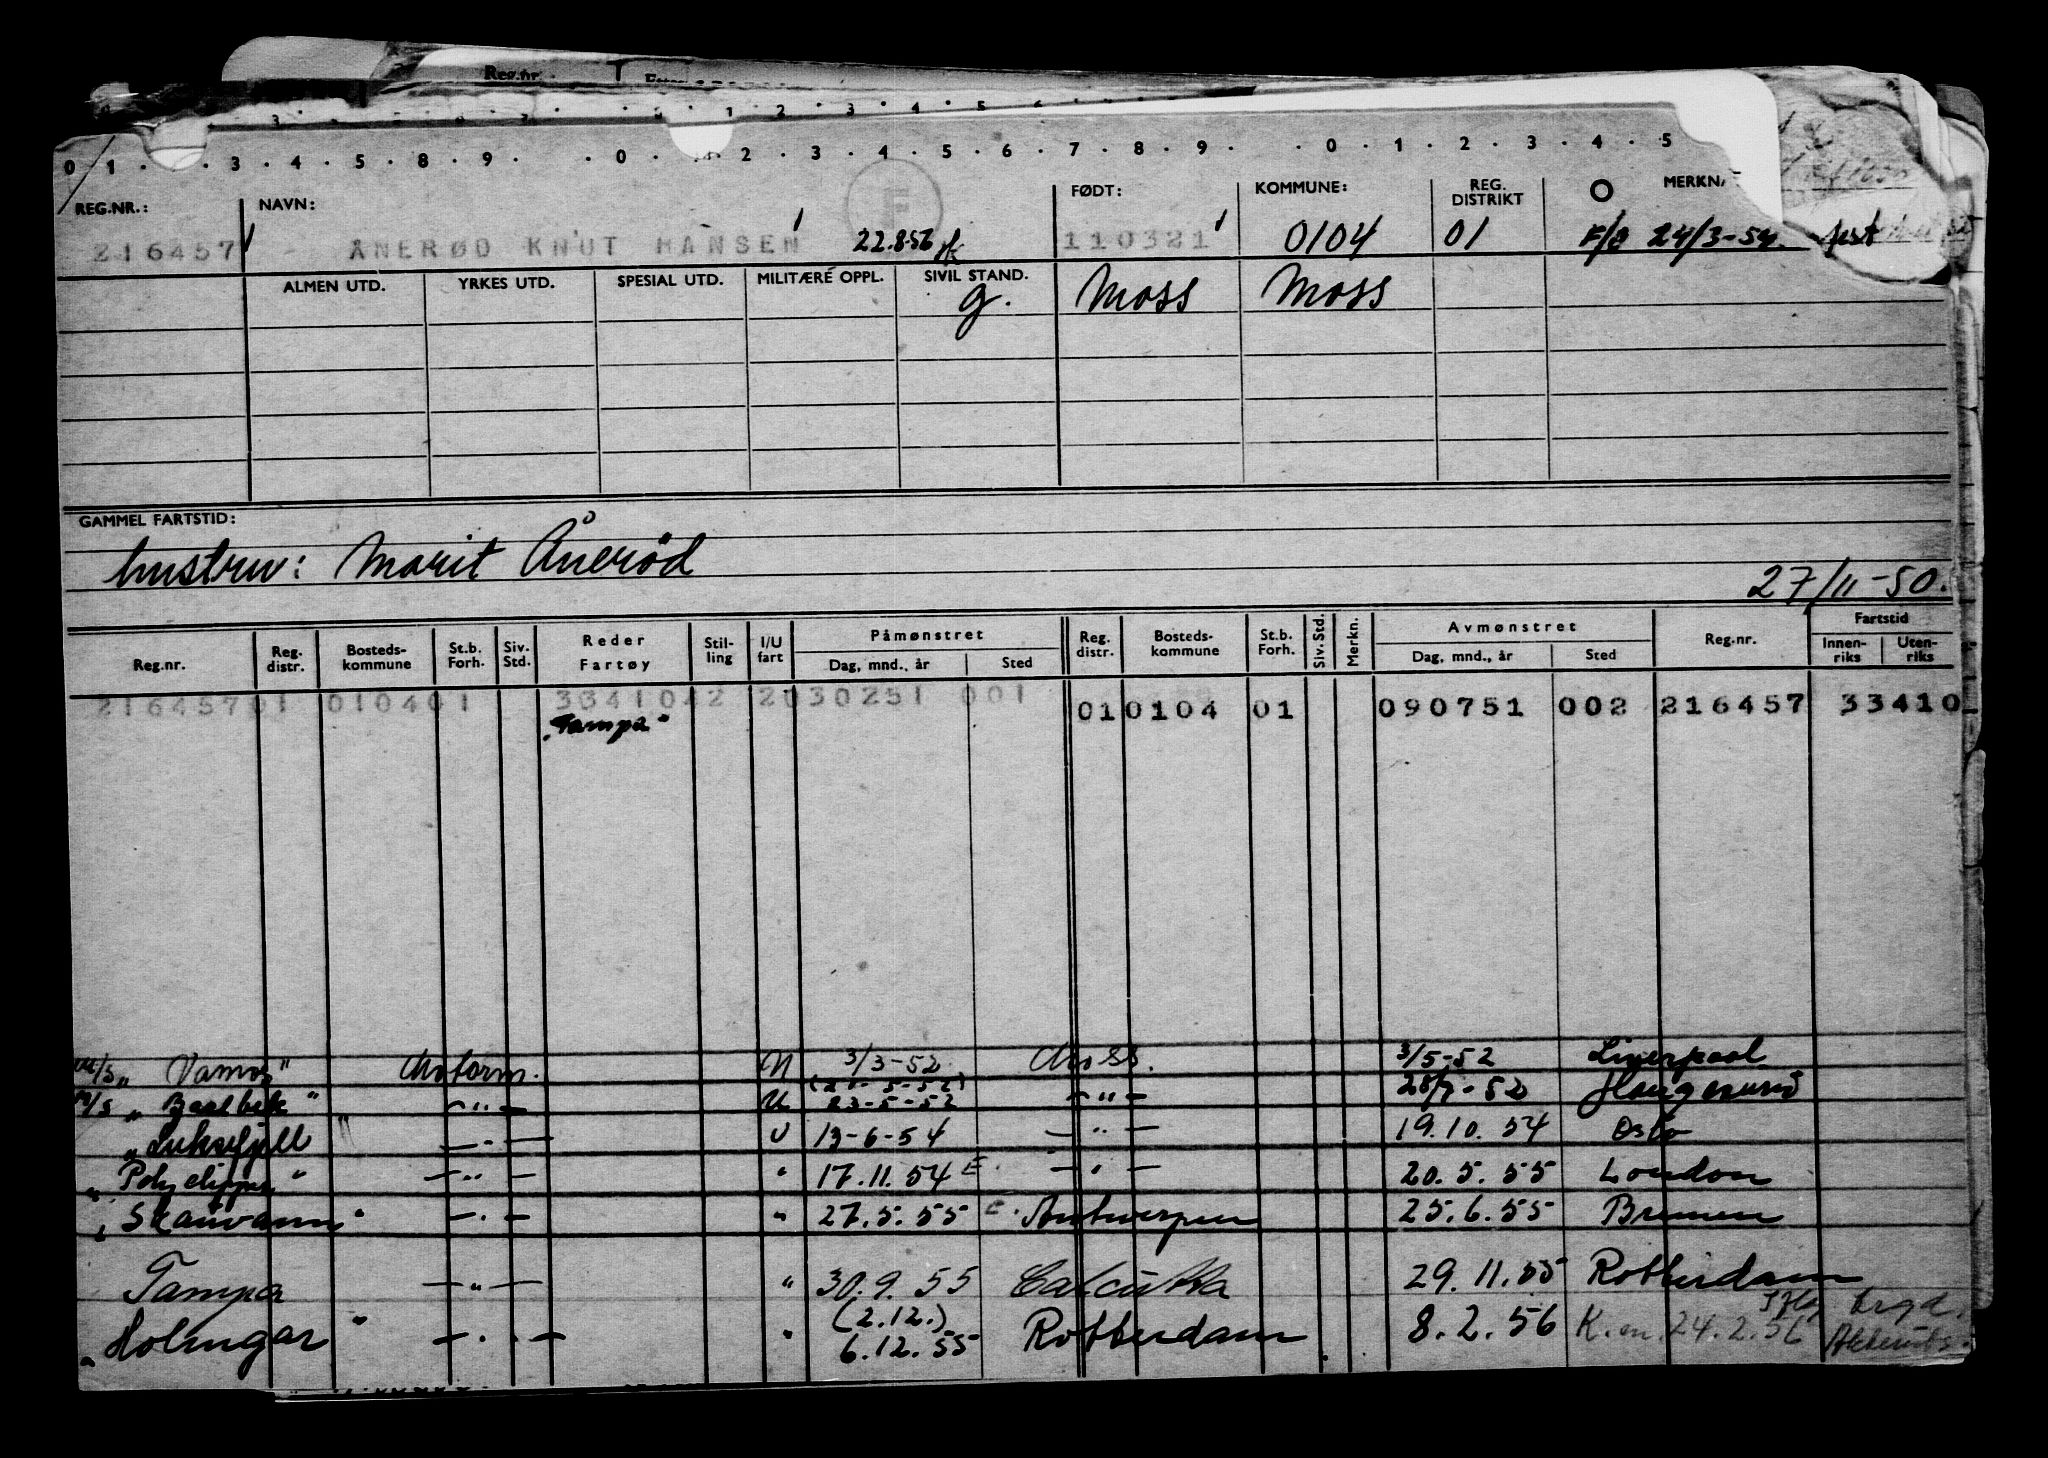 Reg.nr.
3 1 2 3 4 5 6
0 1 . . 3 . 4 . 5 . 8 . 9 . . 0 . 2 . 3 . 4 . 5 . 6 . 7 . 8 . 9 . . 0 . 1 . 2 . 3 . 4 . 5
REG.NR.: NAVN: F FØDT: KOMMUNE: REG. DISTRIKT MERKNA
216457 ÅNERØD KNUT HANSEN 22.8.56 110321 0104 01 F/B 24/3-54.
ALMEN UTD. YRKES UTD. SPESIAL UTD. MILITÆRE OPPL. SIVIL STAND.
g. Moss Moss
GAMMEL FARTSTID:
hustru: Marit Ånerød
27/11-50.
Reg.nr. Reg. distr. Bosteds- kommune St.b. Forh. Siv. Std. Reder Fartøy Stil- ling I/U fart Påmønstret Dag, mnd., år Sted Reg. distr. Bosteds- kommune St.b. Forh. Siv. Std. Merkn. Avmønstret Dag, mnd., år Sted Reg.nr. Fartstid Innen- riks Uten- riks
216457 01 0104 01 3341042 2 030251 001 01 0104 01 090751 002 216457 33410
"Tampa"
M/S " Vamos" Motorm. U 3/3-52 Moss. 3/5-52 Liverpool
M/S " Bastbek " - " - U 23-5-52 - " - 28/7-52 Haugesund
" Luksefjell " - " - U 19-6-54 - " - 19.10.54 Oslo
" Polyclipper " - " - " 17.11.54 E. - " - 20.5.55 London
" Skauvann " - " - " 27.5.55 E. Antwerpen 25.6.55 Bremen
Tampa - " - " 30.9.55 Calcutta 29.11.55 Rotterdam
" Holmgar " - " - " (2.12.) 6.12.55 Rotterdam 8.2.56 K.m. 24.2.56